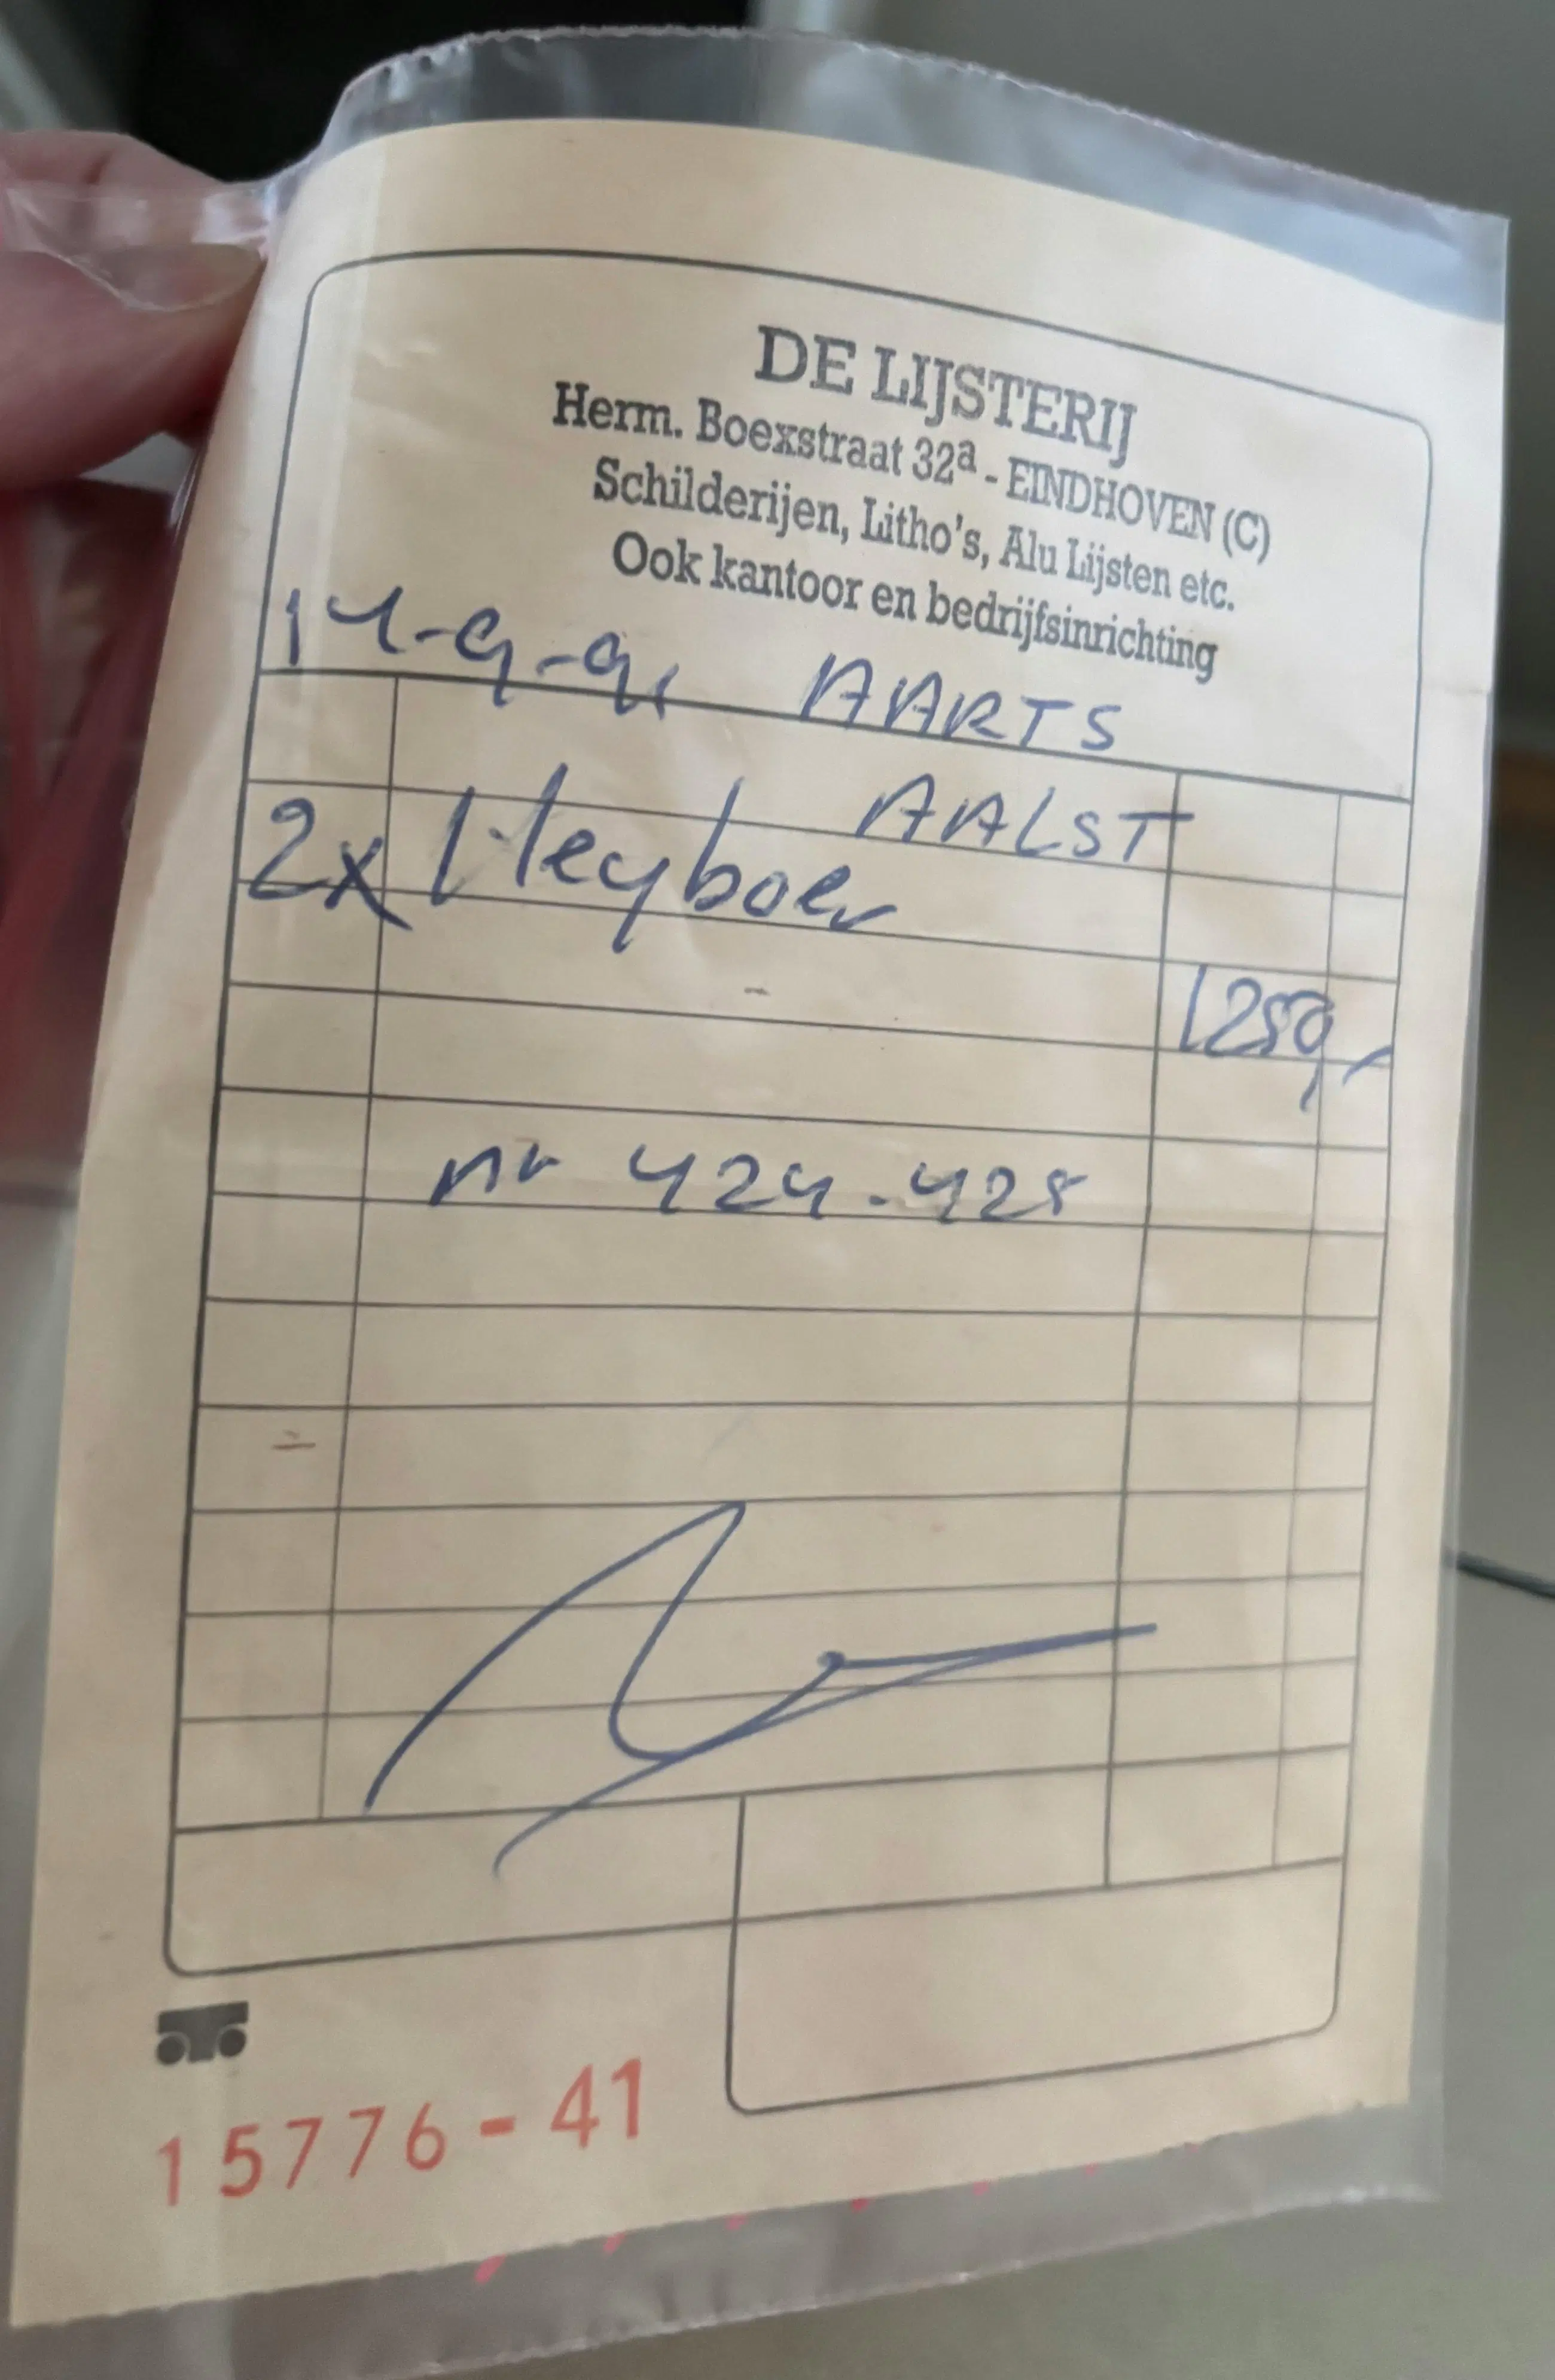 DE LIJSTERIJ
Herm. Boexstraat 32a - EINDHOVEN (C)
Schilderijen, Litho's, Alu Lijsten etc.
Ook kantoor en bedrijfsinrichting
14-9-91 AARTS
AALST
2x Heyboer
1250,-
nr 424-425
15776-41